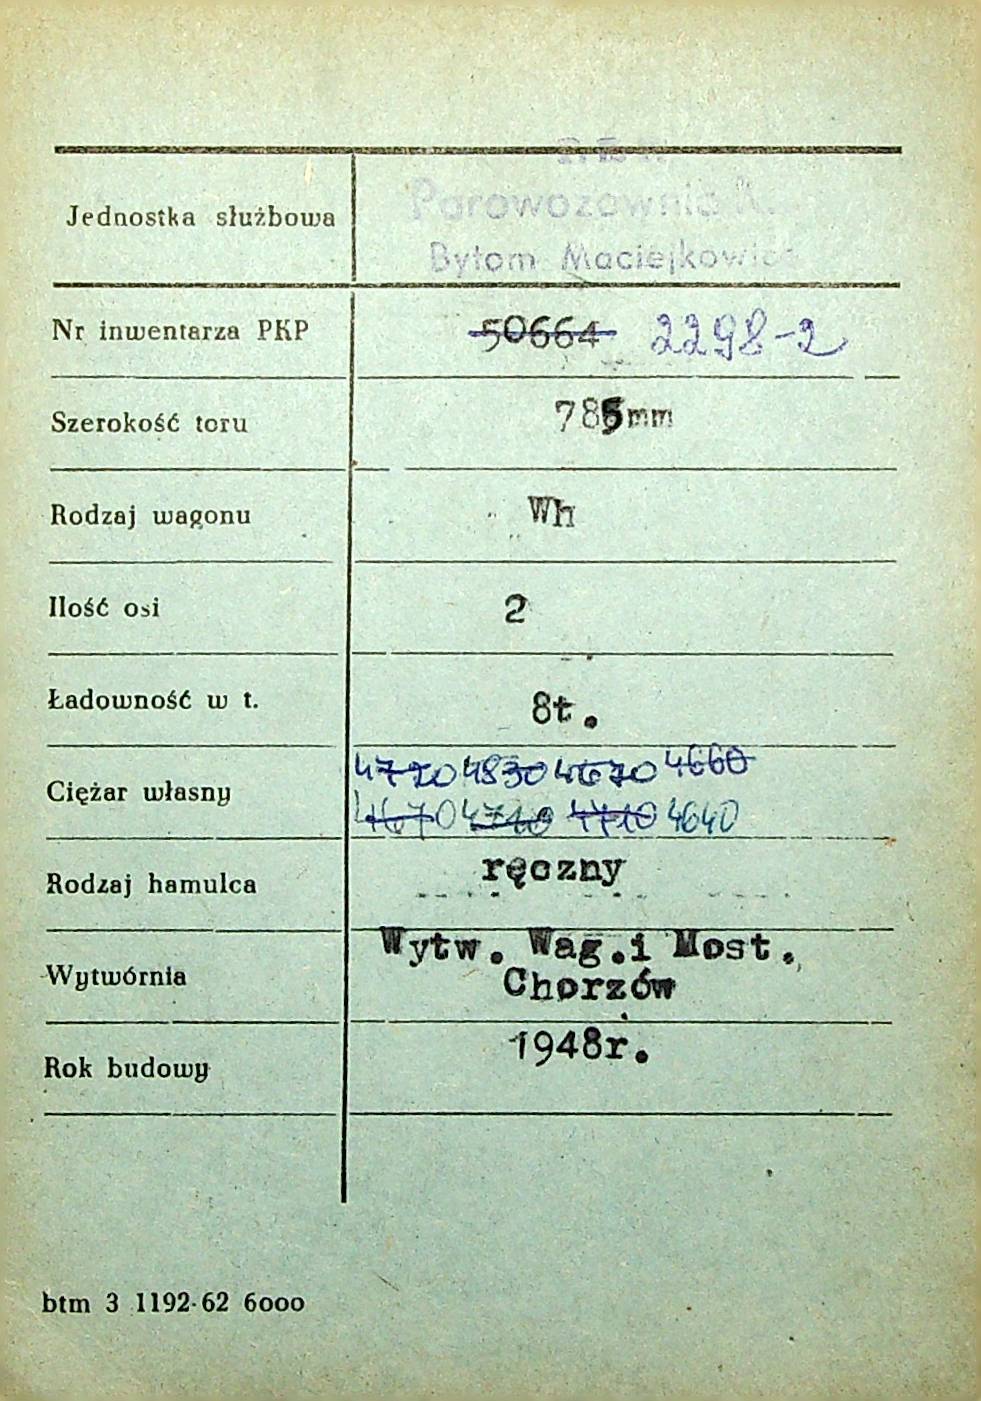 Parowozownia
Jednostka służbowa
Bytom Maciejkowice
Nr inwentarza PKP 50664 2298-2
Szerokość toru 785mm
Rodzaj wagonu Wh
Ilość osi 2
Ładowność w t. 8t.
4720 4830 4670 4660
Ciężar własny
4670 4710 4710 4640
Rodzaj hamulca ręczny
Wytw. Wag.i Most.
Wytwórnia
Chorzów
Rok budowy 1948r.
btm 3 1192-62 6000